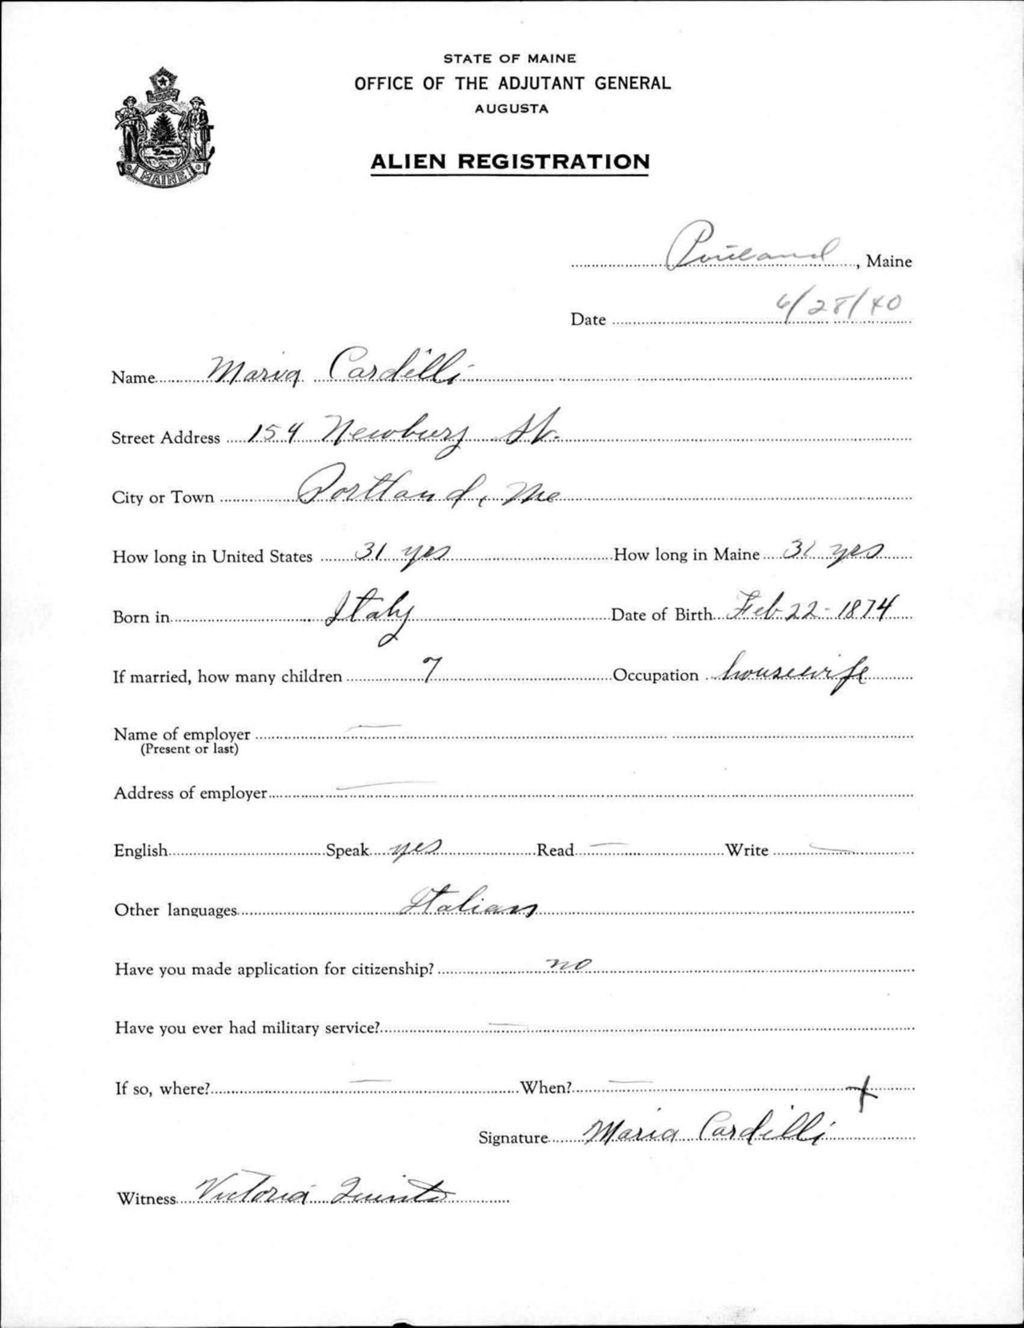 STATE OF MAINE
OFFICE OF THE ADJUTANT GENERAL
AUGUSTA
ALIEN REGISTRATION
MAINE
Portland, Maine
Date 6/28/40
Name Maria Cardilli
Street Address 154 Newbury St.
City or Town Portland, Me
How long in United States 31 yrs How long in Maine 31 yrs
Born in Italy Date of Birth Feb 22-1874
If married, how many children 7 Occupation housewife
Name of employer —
(Present or last)
Address of employer —
English Speak yes Read — Write —
Other languages Italian
Have you made application for citizenship? no
Have you ever had military service? —
If so, where? — When? —
X
Signature Maria Cardilli
Witness Victoria